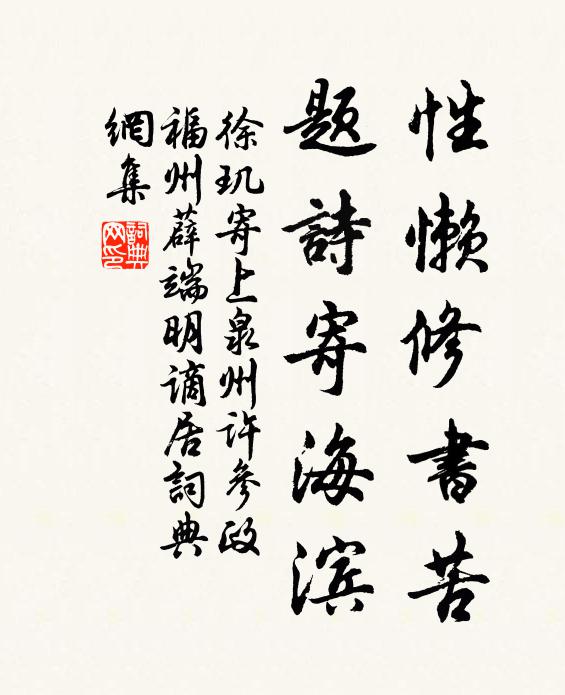 性懒修書苦
題詩寄海滨
徐玑寄上泉州許參政
福州薛端明谪居詞典
網集
詞典
网印